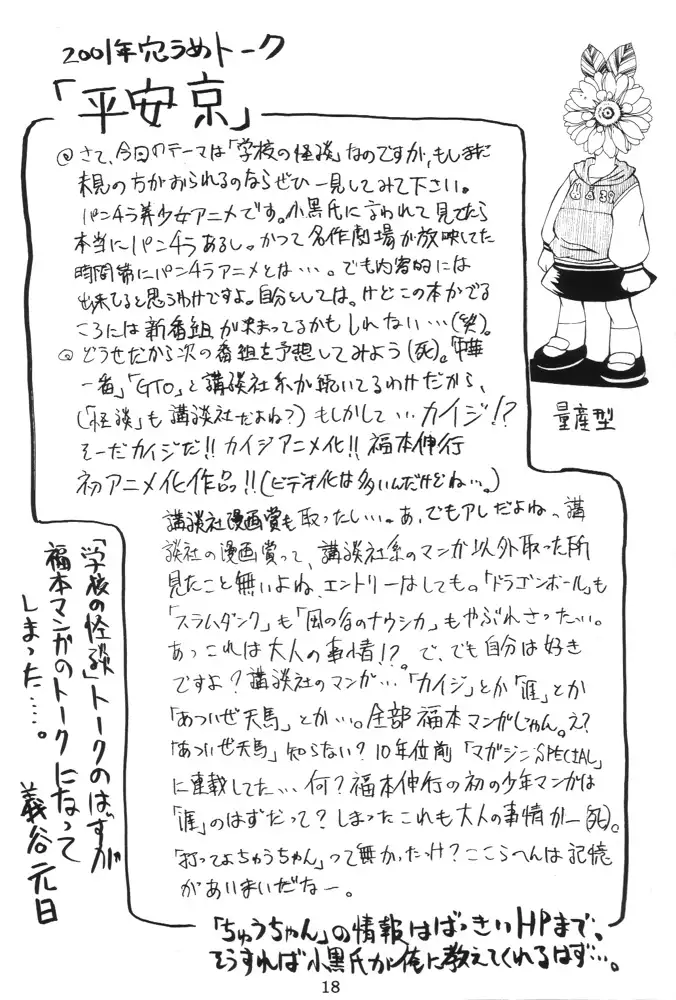 2001年穴うめトーク
「平安京」
◎さて、今回のテーマは「学校の怪談」なのですが、もしまだ
未見の方がおられるのならぜひ一見してみて下さい。
パンチラ美少女アニメです。小黒氏に言われて見てたら
本当にパンチラあるし。かつて名作劇場が放映してた
時間帯にパンチラアニメとは…。でも内容的には
出来てると思うわけですよ。自分としては。けどこの本がでる
ころには新番組が決まってるかもしれない…(笑)。
◎どうせだから次の番組を予想してみよう(死)。「中華
一番」「GTO」と講談社系が続いてるわけだから、
(「怪談」も講談社だよね?)もしかして…カイジ!?
そーだカイジだ!!カイジアニメ化!!福本伸行
初アニメ化作品っ!!(ビデオ化は多いんだけどね…。)
講談社漫画賞も取ったしい…。あ、でもアレだよね、講
談社の漫画賞って、講談社系のマンガ以外取った所
見たこと無いよね、エントリーはしても。「ドラゴンボール」も
「スラムダンク」も「風の谷のナウシカ」もやぶれさったい…。
あっこれは大人の事情!?で、でも自分は好き
ですよ?講談社のマンガ…「カイジ」とか「涯」とか
「あついぜ天馬」とか…。全部福本マンガじゃん。え?
「あついぜ天馬」知らない?10年位前「マガジンSPECIAL」
に連載してた…何?福本伸行の初の少年マンガは
「涯」のはずだって?しまったこれも大人の事情か—(死)。
「打ってよちゅうちゃん」って無かったっけ?ここらへんは記憶
があいまいだなー。
「ちゅうちゃん」の情報はばっきぃHPまで。
そうすれば小黒氏が俺に教えてくれるはず…。
「学校の怪談」トークのはずが
福本マンガのトークになって
しまった…。
義谷元日
量産型
18